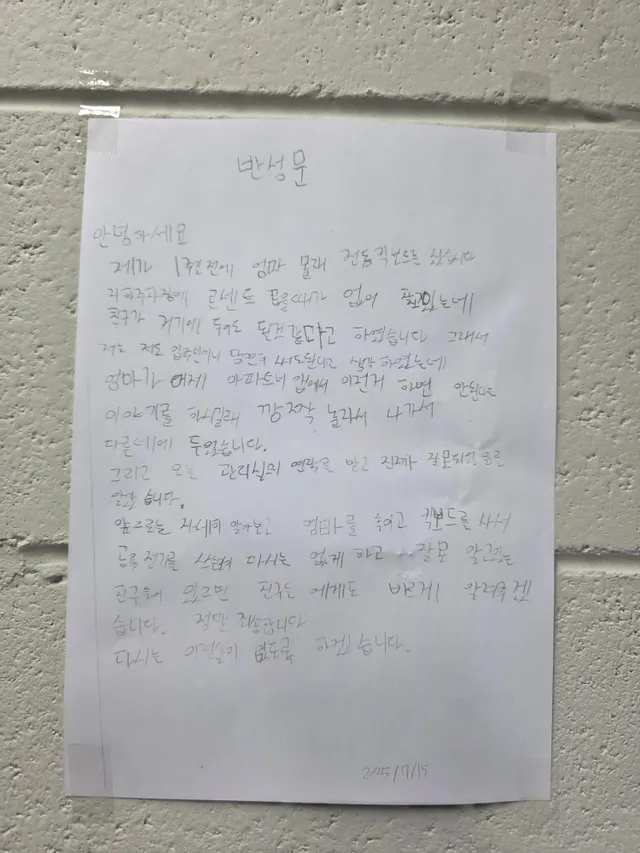 반성문
안녕하세요
제가 1주일전에 엄마 몰래 전동킥보드를 샀습니다
지하주차장에 콘센트 꼽을때가 없어 찾고있는데
친구가 거기에 두어도 된것같다고 하였습니다 그래서
저도 저도 입주민이니 당연히 써도된다고 생각 하였는데
엄마가 어제 아파트너 앱에서 이런거 하면 안된다는
이야기를 하시길래 깜짝 놀라서 나가서
다른데에 두었습니다.
그리고 오늘 관리실의 연락을 받고 진짜 잘못되었음을
알았습니다.
앞으로는 자세히 알아보고 엄마를 속이고 킥보드를 사서
공용전기를 쓰는일 다시는 없게 하고 잘못 알고있는
친구들이 있으면 친구들에게도 바르게 알려주겠
습니다. 정말 죄송합니다
다시는 이런일이 없도록 하겠습니다.
2025/7/15